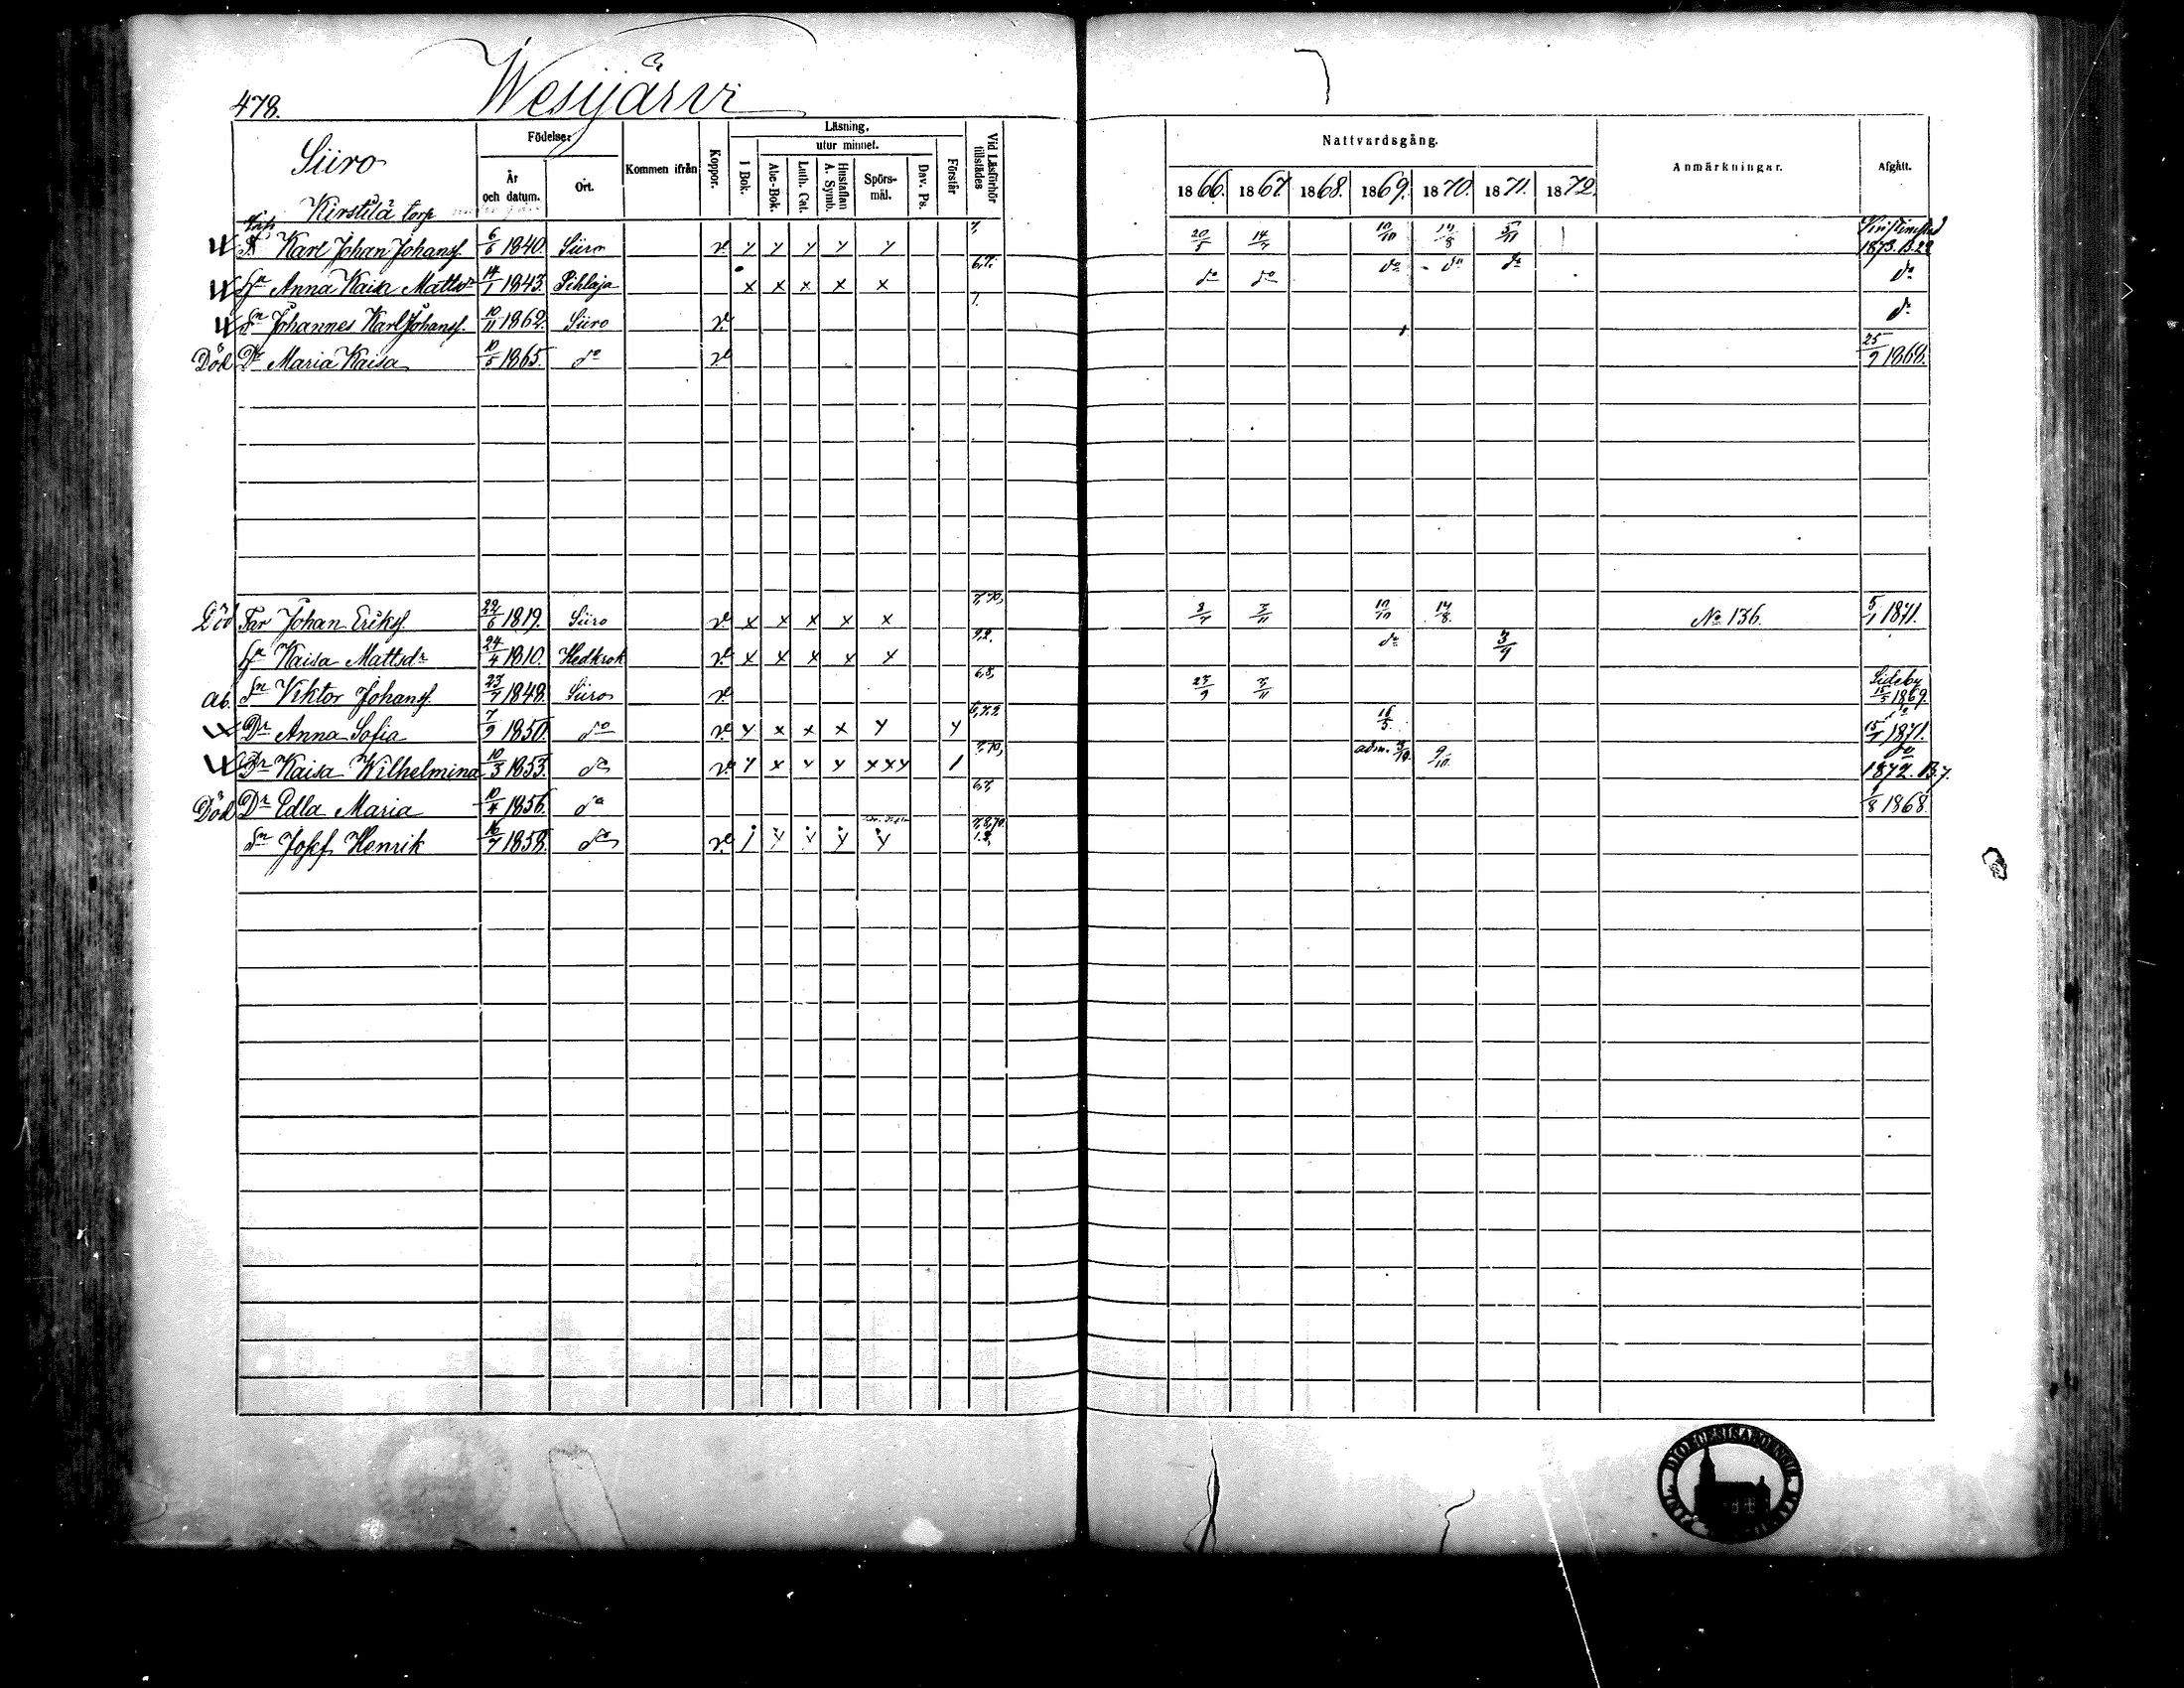 Wesijärvi
478.
Siiro
Kirstilä torp
Födelse:
År och datum.
Ort.
Kommen ifrån
Koppor.
Läsning.
utur minnet.
I Bok.
Abc-Bok.
Luth. Cat.
Hustaflan A. Symb.
Spörs-mål.
Dav. Ps.
Förstår
Vid Läsförhör tillstädes
Nattvardsgång.
1866. 1867. 1868. 1869. 1870. 1871. 1872.
Anmärkningar.
Afgått.
Karl Johan Johansf. 6/6 1840. Siiro v. y y y y y 7, 20/5 14/7 10/10 14/8 5/11 Kristinestad 1873. B. 22
Hu Anna Kaisa Mattsdr 14/1 1843. Pihlaja x x x x x 6,7. do do do do do do
Sn Johannes Karl Johansf. 10/11 1862. Siiro v. 7. do
Död Dr Maria Kaisa 10/5 1865. do v. 25/9 1868.
Död Far Johan Eriksf. 22/6 1819. Siiro v. x x x x x 7,70, 8/7 3/11 10/10 14/8 No 136. 5/1 1871.
Hu Kaisa Mattsdr 24/4 1810. Hedkrok v. x x x x x do 3/9
Ab. Sn Viktor Johansf. 23/7 1848. Siiro v. 6,8, 23/9 3/11 Sideby 15/5 1869.
Dr Anna Sofia 7/9 1850. do v. y x x x y y 16/5 15/7 1871.
Dr Kaisa Wilhelmina 10/3 1853. do v. y x y y xxy 1 7,70, adm. 9/10. do 1872. B. 7.
Död Dr Edla Maria 10/4 1856. do 6,7, 1/8 1868.
Sn Josef Henrik 16/7 1858. do v. y y y y 7,8,70. 1.2,
DIOECESIS ABOENSIS